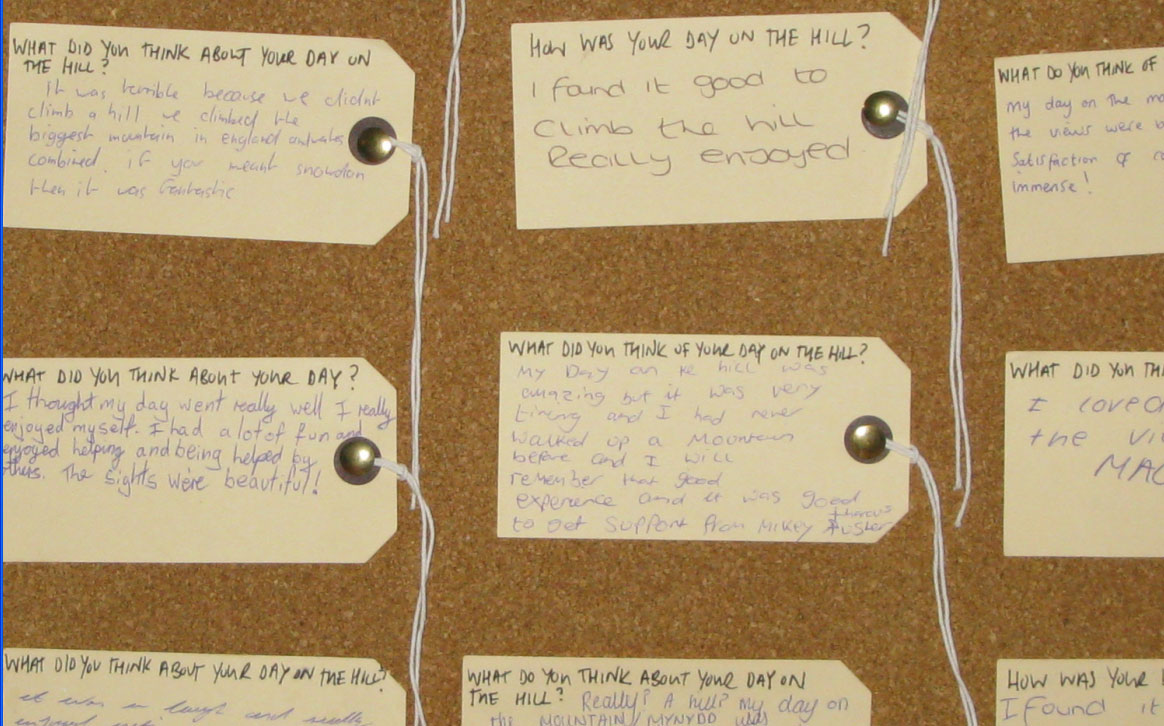 WHAT DID YOU THINK ABOUT YOUR DAY ON
THE HILL?
It was terrible because we didnt
climb a hill we climbed the
biggest mountain in england andwales
combined. if you meant snowdon
then it was fantastic
HOW WAS YOUR DAY ON THE HILL?
I found it good to
Climb the hill
Really enjoyed
WHAT DO YOU THINK OF
my day on the
the views were
Satisfaction of
immense!
WHAT DID YOU THINK ABOUT YOUR DAY?
I thought my day went really well I really
enjoyed myself. I had a lot of fun and
enjoyed helping and being helped by
others. The sights were beautiful!
WHAT DID YOU THINK OF YOUR DAY ON THE HILL?
My Day on te hill was
amazing but it was very
tiring and I had never
walked up a Mountain
before and I will
remember that good
experience and it was good
to get support from Mikey
WHAT DID YOU
I love
the
WHAT DID YOU THINK ABOUT YOUR DAY ON THE HILL?
it was a laugh and really
WHAT DO YOU THINK ABOUT YOUR DAY ON
THE HILL? Really? A hill? my day on
the MOUNTAIN/MYNYDD was
HOW WAS YOUR
I found it